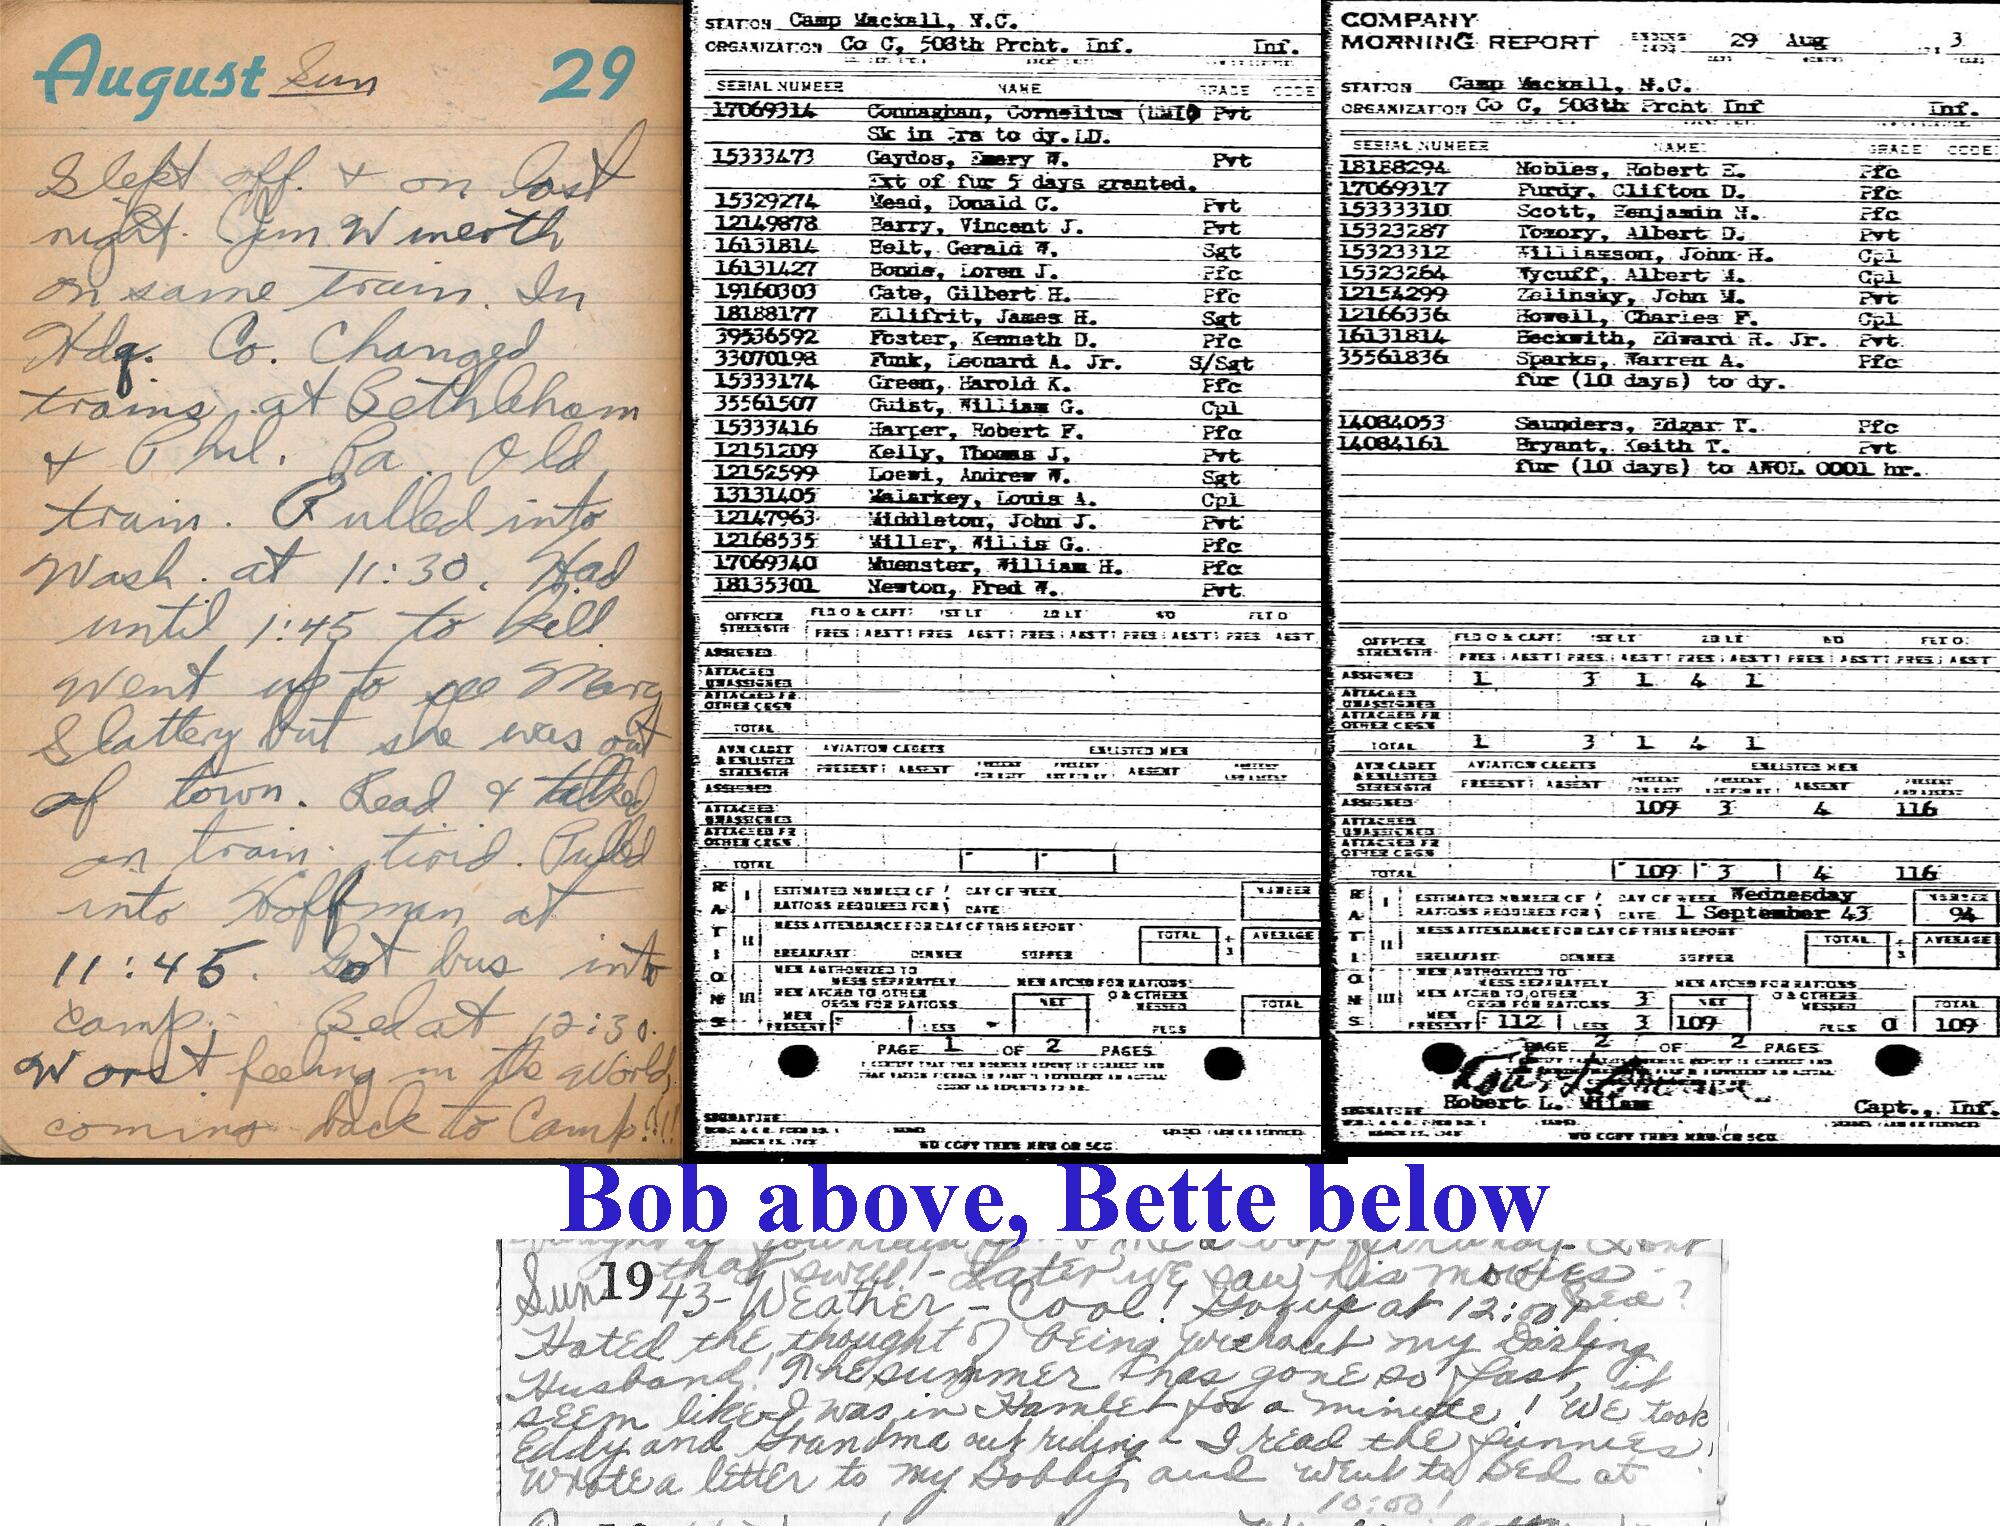 August Sun 29
Slept off & on last
night. Jim Winerth
on same train. In
Hdq. Co. Changed
trains at Bethlehem
& Phil. Pa. Old
train. Pulled into
Wash. at 11:30. Had
until 1:45 to kill
Went up to see Mary
Slattery but she was out
of town. Read & talked
on train. tired. Pulled
into Hoffman at
11:45. Got bus into
camp. Bed at 12:30.
Worst feeling in the world,
coming back to Camp!!!!
STATION Camp Mackall, N.C.
ORGANIZATION Co C, 508th Prcht. Inf. Inf.
SERIAL NUMBER NAME GRADE CODE
17069314 Connaghan, Cornelius Pvt
Sk in to dy. LD.
15333473 Gaydos, Emery W. Pvt
Ext of fur 5 days granted.
15329274 Mead, Donald C. Pvt
12149878 Barry, Vincent J. Pvt
16131814 Belt, Gerald W. Sgt
16131427 Bonds, Loren J. Pfc
19160303 Cate, Gilbert H. Pfc
18188177 Ellifrit, James H. Sgt
39536592 Foster, Kenneth D. Pfc
33070198 Funk, Leonard A. Jr. S/Sgt
15333174 Green, Harold K. Pfc
35561507 Guist, William G. Cpl
15333416 Harper, Robert F. Pfc
12151209 Kelly, Thomas J. Pvt
12152599 Loewi, Andrew W. Sgt
13131405 Malarkey, Louis A. Cpl
12147963 Middleton, John J. Pvt
12168535 Miller, Willis G. Pfc
17069340 Muenster, William H. Pfc
18135301 Newton, Fred W. Pvt
OFFICER STRENGTH FLD O & CAPT 1ST LT 2D LT WO FLT O
PRES ABST PRES ABST PRES ABST PRES ABST PRES ABST
ASSIGNED
ATTACHED UNASSIGNED
ATTACHED FR OTHER ORGN
TOTAL
AVN CADET & ENLISTED STRENGTH AVIATION CADETS ENLISTED MEN
PRESENT ABSENT ABSENT
ASSIGNED
ATTACHED UNASSIGNED
ATTACHED FR OTHER ORGN
TOTAL
RATIONS
I ESTIMATED NUMBER OF RATIONS REQUIRED FOR DAY OF WEEK DATE NUMBER
II MESS ATTENDANCE FOR DAY OF THIS REPORT TOTAL AVERAGE
BREAKFAST DINNER SUPPER
III MEN AUTHORIZED TO MESS SEPARATELY MEN ATCHD FOR RATIONS
MEN ATCHD TO OTHER ORGN FOR RATIONS NET & OTHERS MESSED TOTAL
MEN PRESENT LESS PLUS
PAGE 1 OF 2 PAGES
SIGNATURE
COMPANY
MORNING REPORT ENDING 29 Aug 3
STATION Camp Mackall, N.C.
ORGANIZATION Co C, 508th Prcht Inf Inf.
SERIAL NUMBER NAME GRADE CODE
18188294 Nobles, Robert E. Pfc
17069317 Purdy, Clifton D. Pfc
15333310 Scott, Benjamin N. Pfc
15323287 Tozory, Albert D. Pvt
15323312 Williamson, John H. Cpl
15323264 Wycuff, Albert M. Cpl
12154299 Zelinsky, John M. Pvt
12166336 Howell, Charles F. Cpl
16131814 Beckwith, Edward R. Jr. Pvt
35561836 Sparks, Warren A. Pfc
fur (10 days) to dy.
14084053 Saunders, Edgar T. Pfc
14084161 Bryant, Keith T. Pvt
fur (10 days) to AWOL 0001 hr.
OFFICER STRENGTH FLD O & CAPT 1ST LT 2D LT WO FLT O
PRES ABST PRES ABST PRES ABST PRES ABST PRES ABST
ASSIGNED 1 3 1 4 1
ATTACHED UNASSIGNED
ATTACHED FR OTHER ORGN
TOTAL 1 3 1 4 1
AVN CADET & ENLISTED STRENGTH AVIATION CADETS ENLISTED MEN
PRESENT ABSENT ABSENT
ASSIGNED 109 3 4 116
ATTACHED UNASSIGNED
ATTACHED FR OTHER ORGN
TOTAL 109 3 4 116
RATIONS
I ESTIMATED NUMBER OF RATIONS REQUIRED FOR DAY OF WEEK Wednesday DATE 1 September 43 NUMBER 94
II MESS ATTENDANCE FOR DAY OF THIS REPORT TOTAL AVERAGE
BREAKFAST DINNER SUPPER
III MEN AUTHORIZED TO MESS SEPARATELY MEN ATCHD FOR RATIONS
MEN ATCHD TO OTHER ORGN FOR RATIONS 3 NET & OTHERS MESSED TOTAL
MEN PRESENT 112 LESS 3 109 PLUS 0 109
PAGE 2 OF 2 PAGES
SIGNATURE Robert L. Milam Capt., Inf.
Bob above, Bette below
that swell! - Later we saw his movies -
Sun 1943 - Weather - Cool! Got up at 12:00!
Hated the thought of being without my Darling
Husband! The summer has gone so fast, it
seem like I was in Hamlet for a minute! We took
Eddy and Grandma out riding - I read the funnies,
Wrote a letter to my Bobby and went to Bed at
10:00!